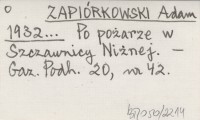 ZAPIÓRKOWSKI Adam
1932... Po pożarze w
Szczawnicy Niżnej. –
Gaz. Podh. 20, nr 42.